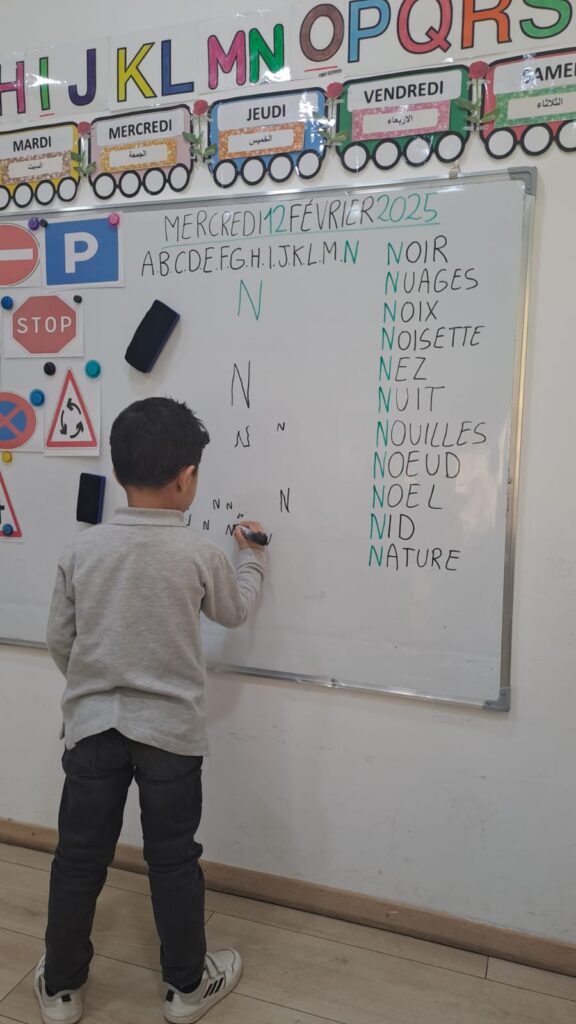 H I J K L M N O P Q R S
MARDI MERCREDI JEUDI VENDREDI SAME
السبت الجمعة الخميس الاربعاء الثلاثاء
MERCREDI 12 FÉVRIER 2025
A.B.C.D.E.F.G.H.I.J.K.L.M.N
P
STOP
N
N
N N
N N N
N N
NOIR
NUAGES
NOIX
NOISETTE
NEZ
NUIT
NOUILLES
NOEUD
NOEL
NID
NATURE